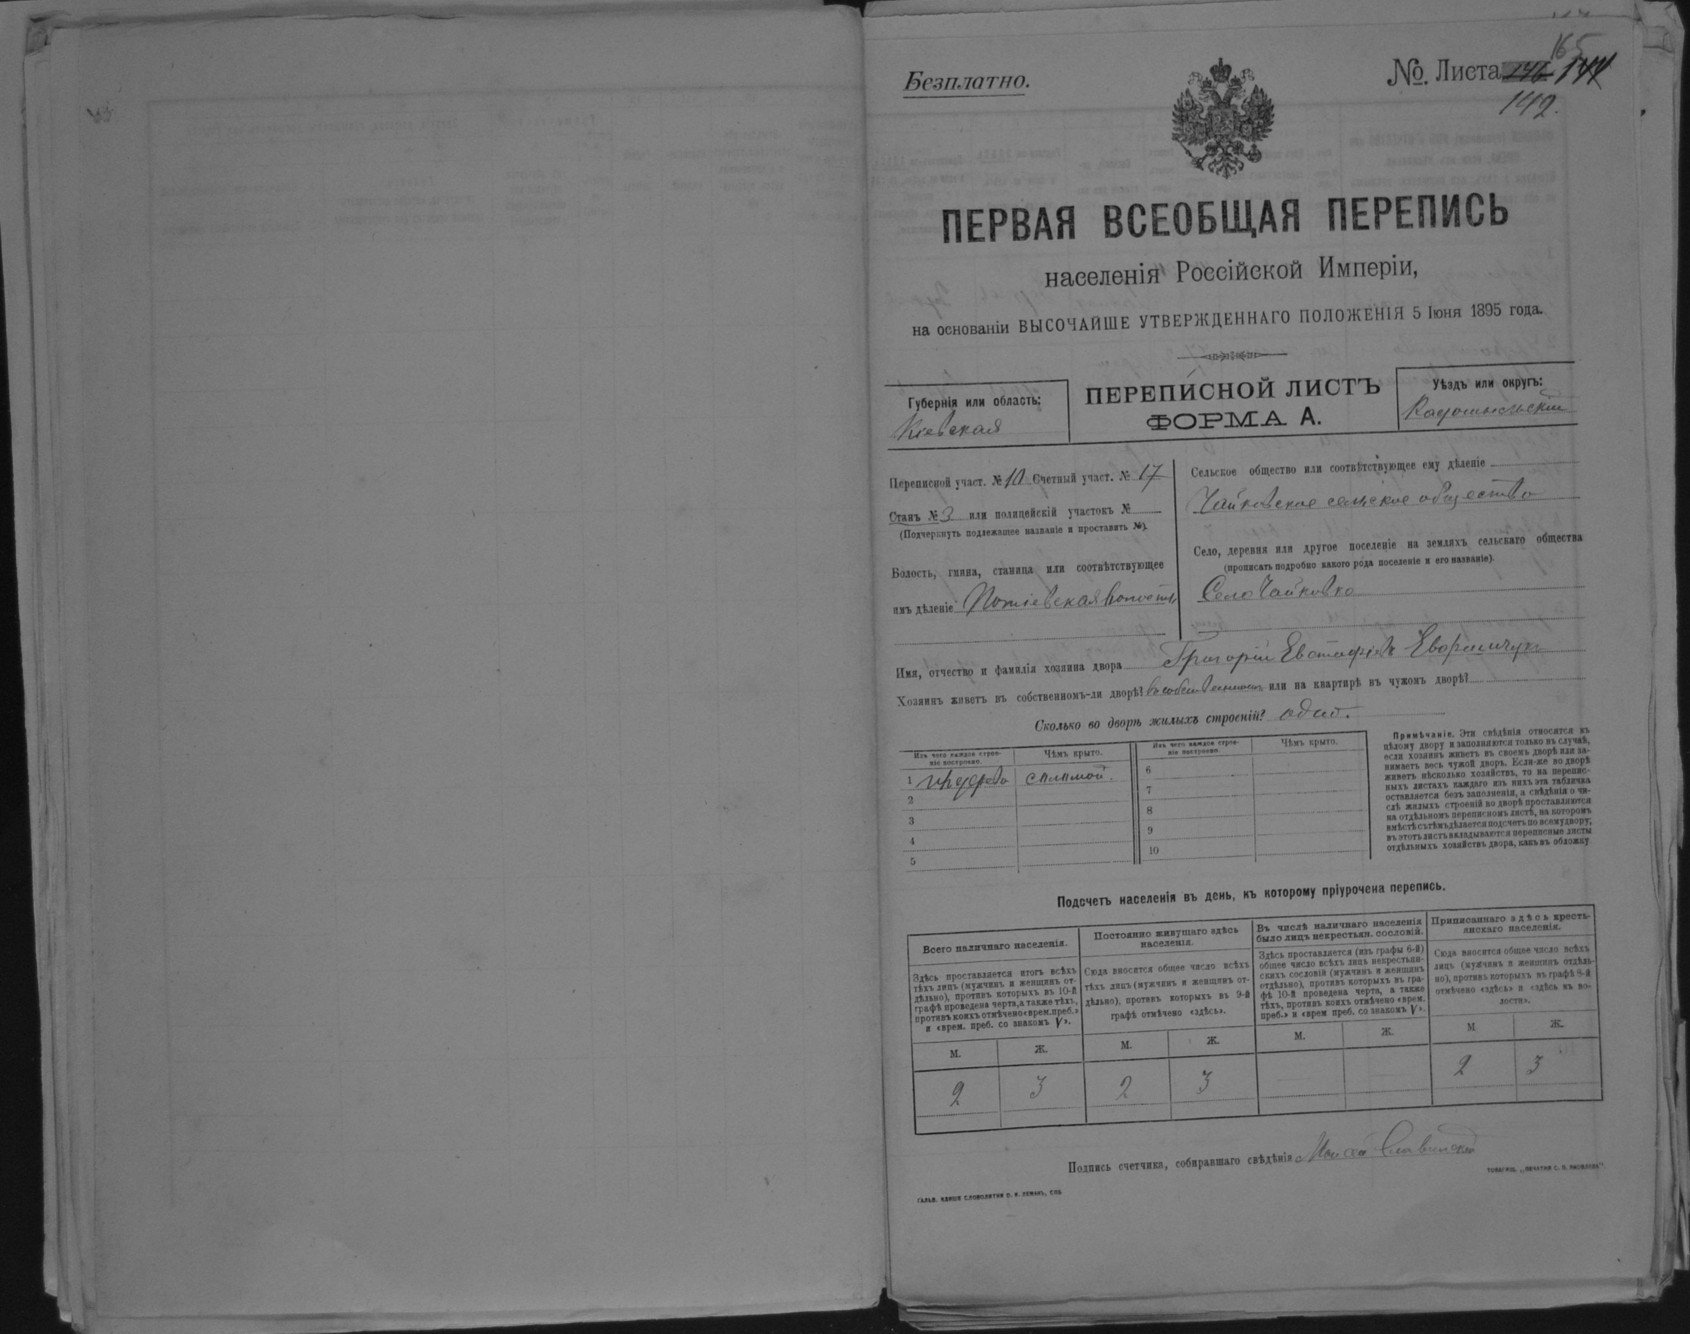 Безплатно.
№. Листа 146 144
165
142.
ПЕРВАЯ ВСЕОБЩАЯ ПЕРЕПИСЬ
населенія Россійской Имперіи,
на основаніи ВЫСОЧАЙШЕ УТВЕРЖДЕННАГО ПОЛОЖЕНІЯ 5 Іюня 1895 года.
Губернія или область:
Кіевская
ПЕРЕПИСНОЙ ЛИСТЪ
ФОРМА А.
Уѣздъ или округъ:
Радомысльскій
Переписной участ. № 10 Счетный участ. № 17
Станъ № 3 или полицейскій участокъ №
(Подчеркнуть подлежащее названіе и проставить №).
Волость, гмина, станица или соотвѣтствующее
имъ дѣленіе Потіевская волость
Сельское общество или соотвѣтствующее ему дѣленіе
Чайковское сельское общество
Село, деревня или другое поселеніе на земляхъ сельскаго общества
(прописать подробно какого рода поселеніе и его названіе).
Село Чайковка
Имя, отчество и фамилія хозяина двора Григорій Евстафіевъ
Хозяинъ живетъ въ собственномъ-ли дворѣ? въ собственномъ или на квартирѣ въ чужомъ дворѣ?
Сколько во дворѣ жилыхъ строеній? одно.
Изъ чего каждое строе-
ніе построено.
Чѣмъ крыто.
Изъ чего каждое строе-
ніе построено.
Чѣмъ крыто.
1 изъ дерева соломой.
2
3
4
5
6
7
8
9
10
Примѣчаніе. Эти свѣдѣнія относятся къ
цѣлому двору и заполняются только въ случаѣ,
если хозяинъ живетъ въ своемъ дворѣ или за-
нимаетъ весь чужой дворъ. Если-же во дворѣ
живетъ нѣсколько хозяйствъ, то на перепис-
ныхъ листахъ каждаго изъ нихъ эта табличка
оставляется безъ заполненія, а свѣдѣнія о чи-
слѣ жилыхъ строеній во дворѣ проставляются
на отдѣльномъ переписномъ листѣ, на которомъ
вмѣстѣ съ тѣмъ дѣлается подсчетъ по всему двору;
въ этотъ листъ вкладываются переписные листы
отдѣльныхъ хозяйствъ двора, какъ въ обложку.
Подсчетъ населенія въ день, къ которому пріурочена перепись.
Всего наличнаго населенія.
Здѣсь проставляется итогъ всѣхъ
тѣхъ лицъ (мужчинъ и женщинъ от-
дѣльно), противъ которыхъ въ 10-й
графѣ проведена черта, а также тѣхъ,
противъ коихъ отмѣчено «врем. преб.»
и «врем. преб. со знакомъ V».
Постоянно живущаго здѣсь
населенія.
Сюда вносится общее число всѣхъ
тѣхъ лицъ (мужчинъ и женщинъ от-
дѣльно), противъ которыхъ въ 9-й
графѣ отмѣчено «здѣсь».
Въ числѣ наличнаго населенія
было лицъ некрестьян. сословій.
Здѣсь проставляется (изъ графы 6-й)
общее число всѣхъ лицъ некрестьян-
скихъ сословій (мужчинъ и женщинъ
отдѣльно), противъ которыхъ въ гра-
фѣ 10-й проведена черта, а также
тѣхъ, противъ коихъ отмѣчено «врем.
преб.» и «врем преб. со знакомъ V».
Приписаннаго здѣсь кресть-
янскаго населенія.
Сюда вносится общее число всѣхъ
лицъ (мужчинъ и женщинъ отдѣль-
но), противъ которыхъ въ графѣ 8-й
отмѣчено «здѣсь» и «здѣсь въ во-
лости».
М. Ж. М. Ж. М. Ж. М. Ж.
2 3 2 3 2 3
Подпись счетчика, собиравшаго свѣдѣнія Славинскій
ГАЛЬВ. КЛИШЕ СЛОВОЛИТНИ О. И. ЛЕМАНЪ, СПБ.